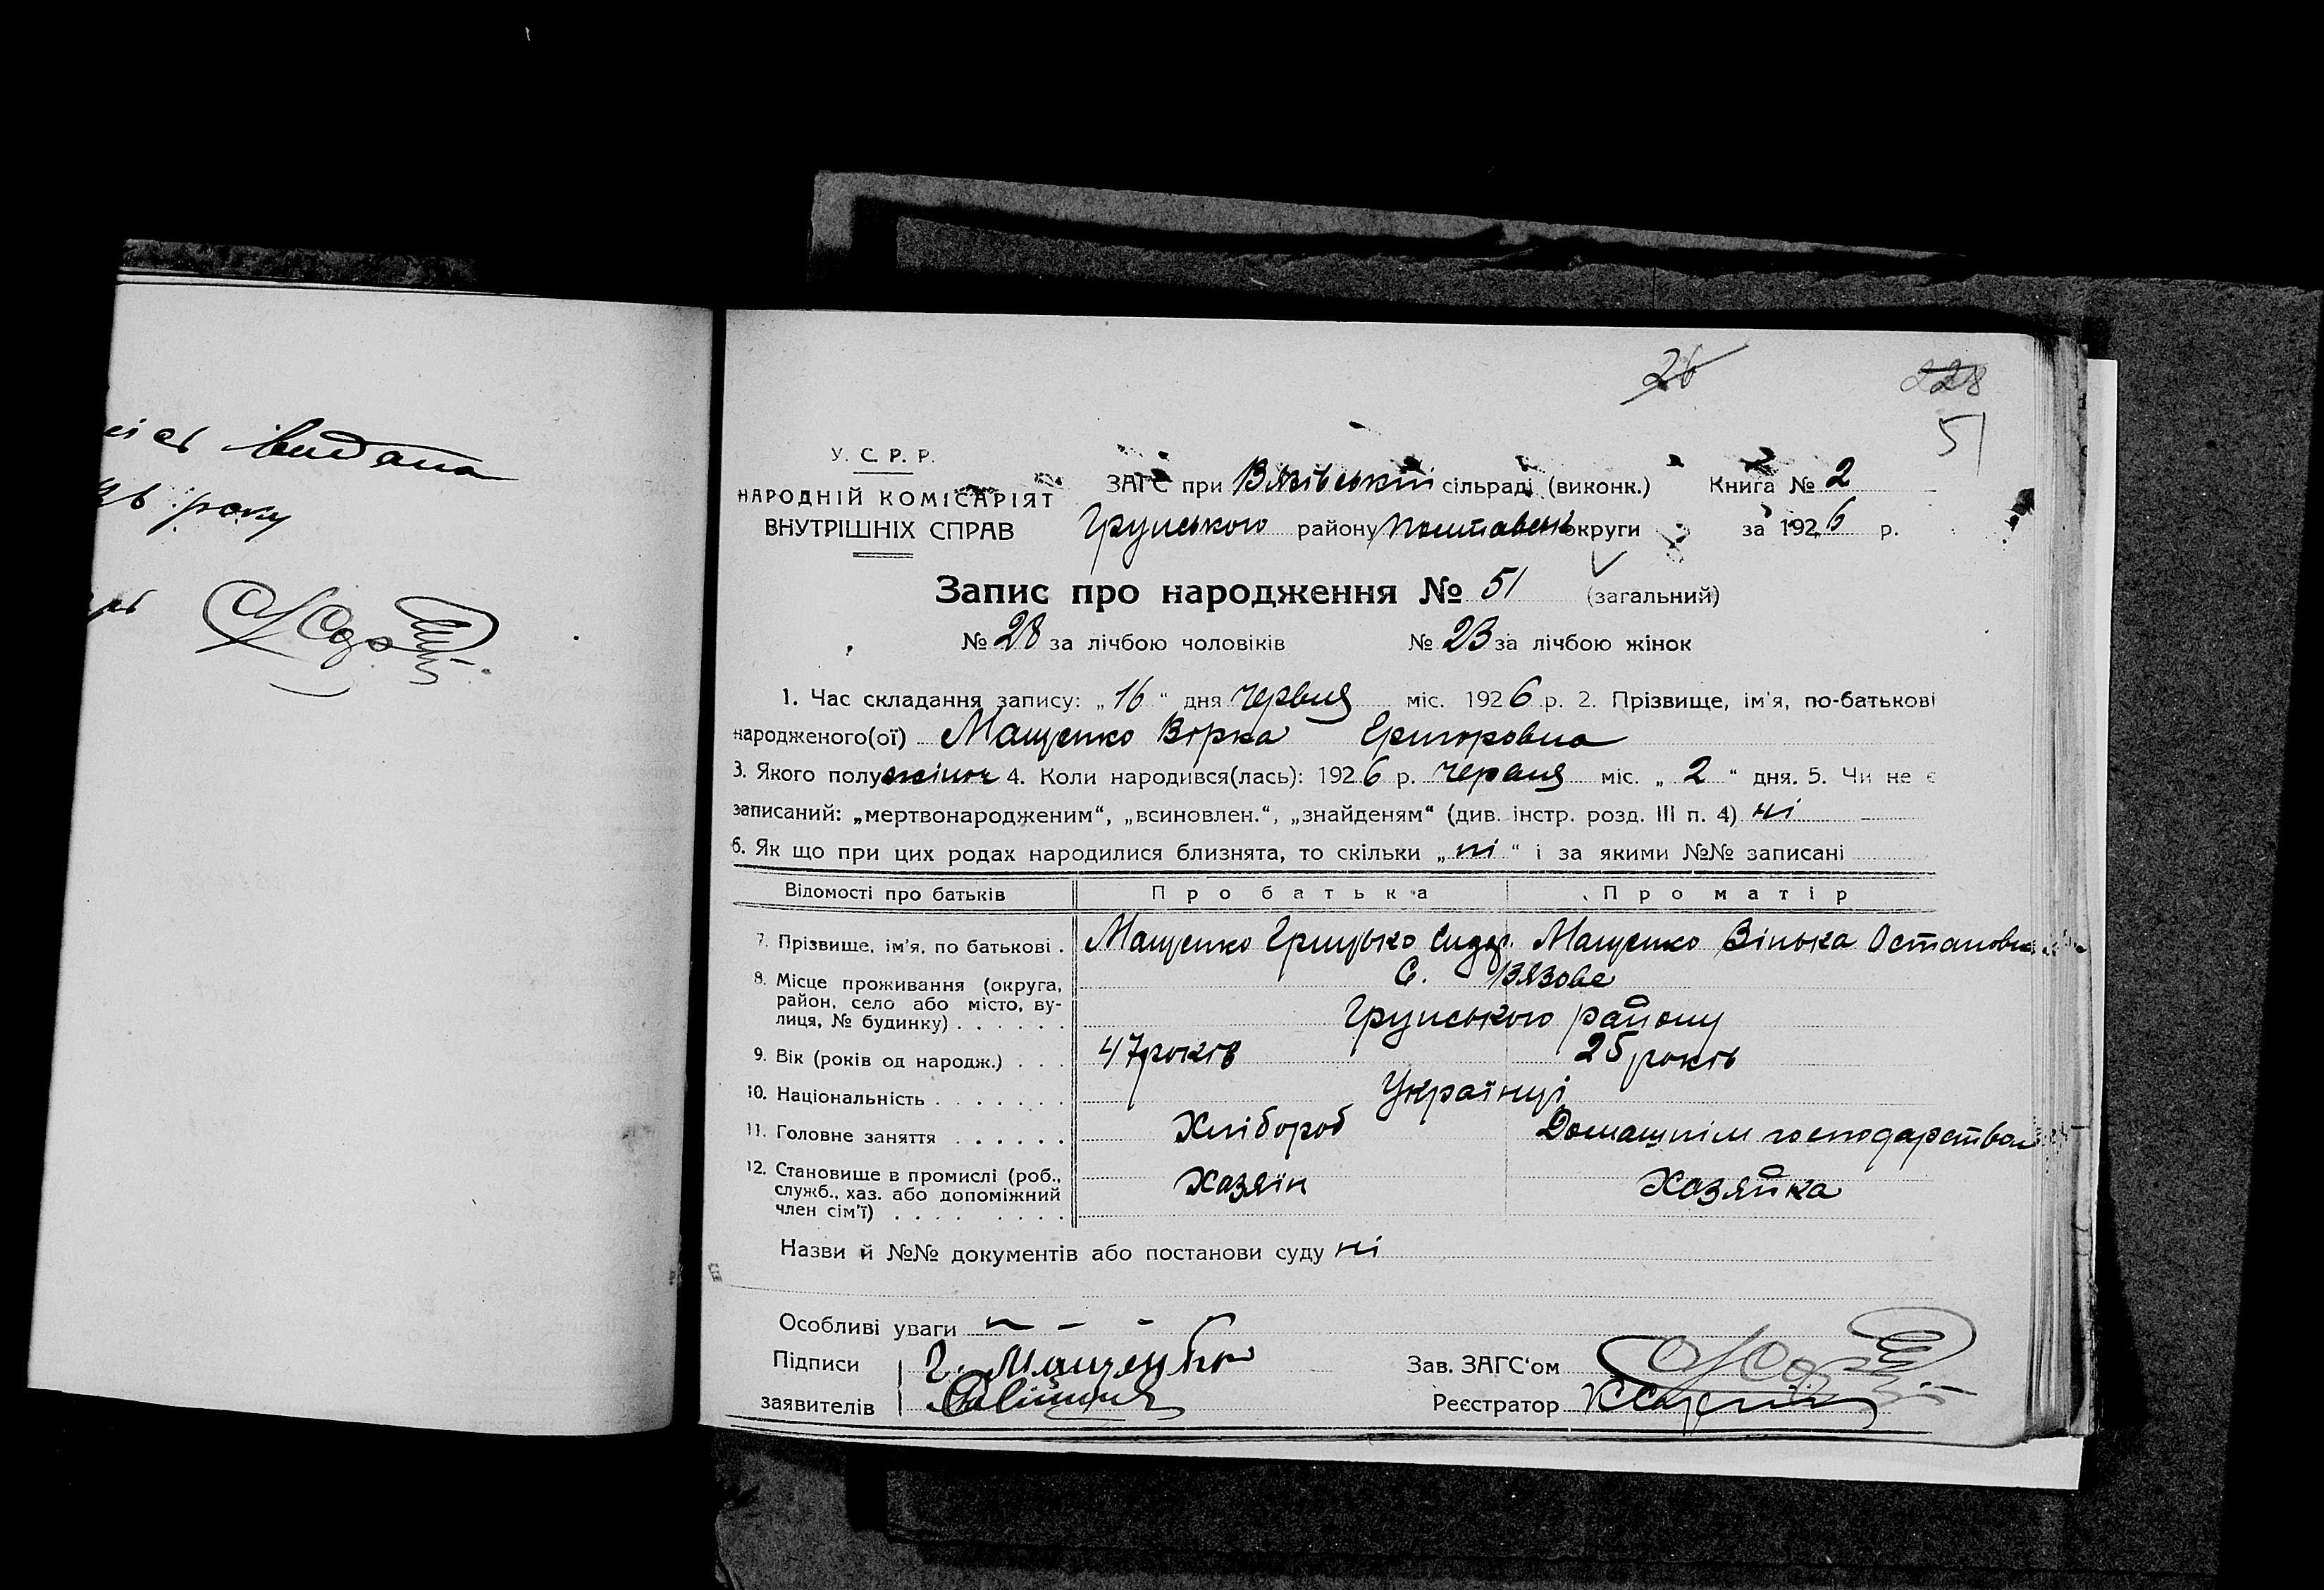 видана
26 року
26
228
51
У. С. Р. Р.
НАРОДНІЙ КОМІСАРІЯТ
ВНУТРІШНІХ СПРАВ
ЗАГС при Вязівській сільраді (виконк.) Книга № 2
Грунського району Полтавськ округи за 1926 р.
Запис про народження № 51 (загальний)
№ 28 за лічбою чоловіків № 23 за лічбою жінок
1. Час складання запису: „16“ дня червня міс. 1926 р. 2. Прізвище, ім'я, по-батькові
народженого(ої) Мащенко Вірка Григоровна
3. Якого полу жіноч 4. Коли народився(лась): 1926 р. червня міс. „2“ дня. 5. Чи не є
записаний: „мертвонародженим“, „всиновлен.“, „знайденям“ (див. інстр. розд. III п. 4) ні
6. Як що при цих родах народилися близнята, то скільки „ні“ і за якими №№ записані
Відомості про батьків Про батька Про матір
7. Прізвище, ім'я, по батькові . Мащенко Грицько Сидор. Мащенко Вінька Остаповна
8. Місце проживання (округа, район, село або місто, вулиця, № будинку) . . . . . . С. Вязове
Грунського району
9. Вік (років од народж.) . . . 47 років 25 років
10. Національність . . . . . . . Українці
11. Головне заняття . . . . . . Хлібороб Домашнім господарством
12. Становище в промислі (роб., служб., хаз. або допоміжний член сім'ї) . . . . . . . . Хазяїн Хазяйка
Назви й №№ документів або постанови суду ні
Особливі уваги — — -
Підписи Г. Мащенко Зав. ЗАГС'ом
заявителів Реєстратор